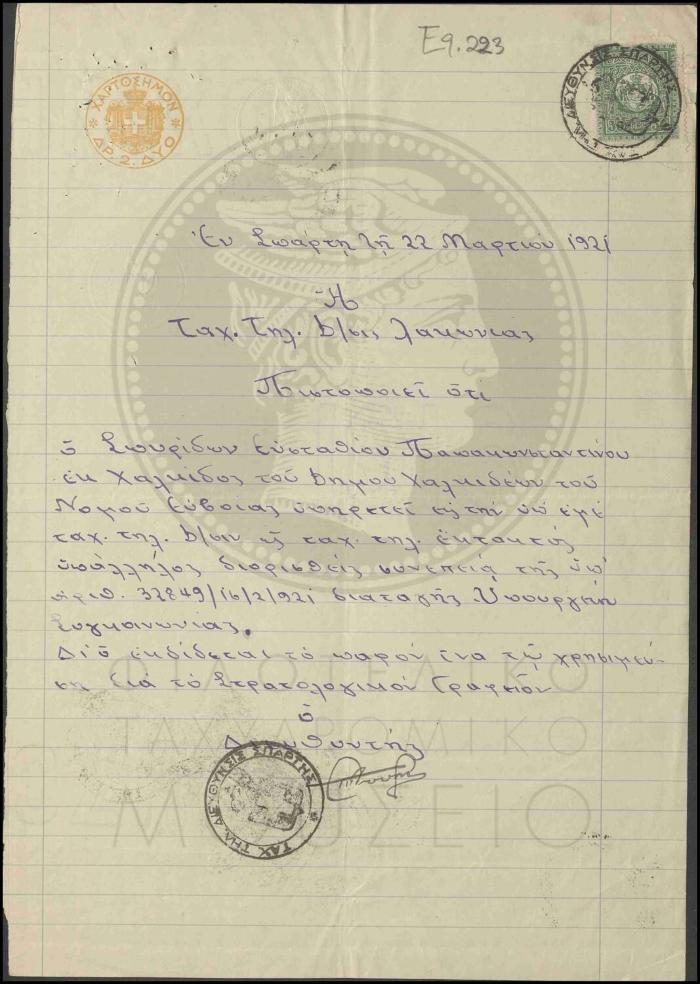 Εφ. 223
ΧΑΡΤΟΣΗΜΟΝ
ΔΡ. 2. ΔΥΟ
ΔΙΕΥΘΥΝΣΙΣ ΣΠΑΡΤΗΣ
Ἐν Σπάρτῃ τῇ 22 Μαρτίου 1921
Ἡ
Ταχ. Τηλ. Δ/σις Λακωνίας
Πιστοποιεῖ ὅτι
ὁ Σπυρίδων Εὐσταθίου Παπακωνσταντίνου
ἐκ Χαλκίδος τοῦ Δήμου Χαλκιδέων τοῦ
Νομοῦ Εὐβοίας ὑπηρετεῖ εἰς τήν ὑπ' ἐμέ
ταχ. τηλ. Δ/σιν ὡς ταχ. τηλ. ἔκτακτος
ὑπάλληλος διορισθείς συνεπείᾳ τῆς ὑπ'
ἀριθ. 32849/16/2/921 διαταγῆς Ὑπουργείου
Συγκοινωνίας.
Δι' ὅ ἐκδίδεται τό παρόν ἵνα τῷ χρησιμεύ-
σῃ διά τό Στρατολογικόν Γραφεῖον
ὁ
Διευθυντής
ΤΑΧ ΤΗΛ. ΔΙΕΥΘΥΝΣΙΣ ΣΠΑΡΤΗΣ
ΦΙΛΟΤΕΛΙΚΟ
ΤΑΧΥΔΡΟΜΙΚΟ
ΜΟΥΣΕΙΟ